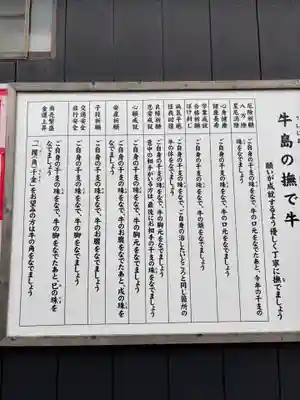 うしじま
牛島の撫で牛
願いが成就するよう優しく丁寧に撫でましょう
厄除祈願
八方除
星厄消除
ご自身の干支の珠をなで、牛の口元をなでたあと、今年の干支の
珠をなでましょう
心身健康
健康長寿
ご自身の干支の珠をなで、牛の口元をなでましょう
学業成就
合格祈願
ぼけ封じ
ご自身の干支の珠をなで、牛の頭をなでましょう
病気平癒
怪我回復
ご自身の干支の珠をなで、ご自身の治したいところと同じ箇所の
牛の体をなでましょう
良縁祈願
恋愛成就
ご自身の干支の珠をなで、牛の胸元をなでましょう
意中の相手がいる方は、最後にお相手の干支の珠をなでましょう
心願成就
ご自身の干支の珠をなで、牛の胸元をなでましょう
安産祈願
ご自身の干支の珠をなで、牛のお腹をなでたあと、戌の珠を
なでましょう
子授祈願
ご自身の干支の珠をなで、牛のお腹をなでましょう
交通安全
旅行安全
ご自身の干支の珠をなで、牛の脚をなでましょう
商売繁盛
金運上昇
ご自身の干支の珠をなで、牛の脚をなでたあと、巳の珠を
なでましょう
「一攫(角)千金」をお望みの方は牛の角をなでましょう